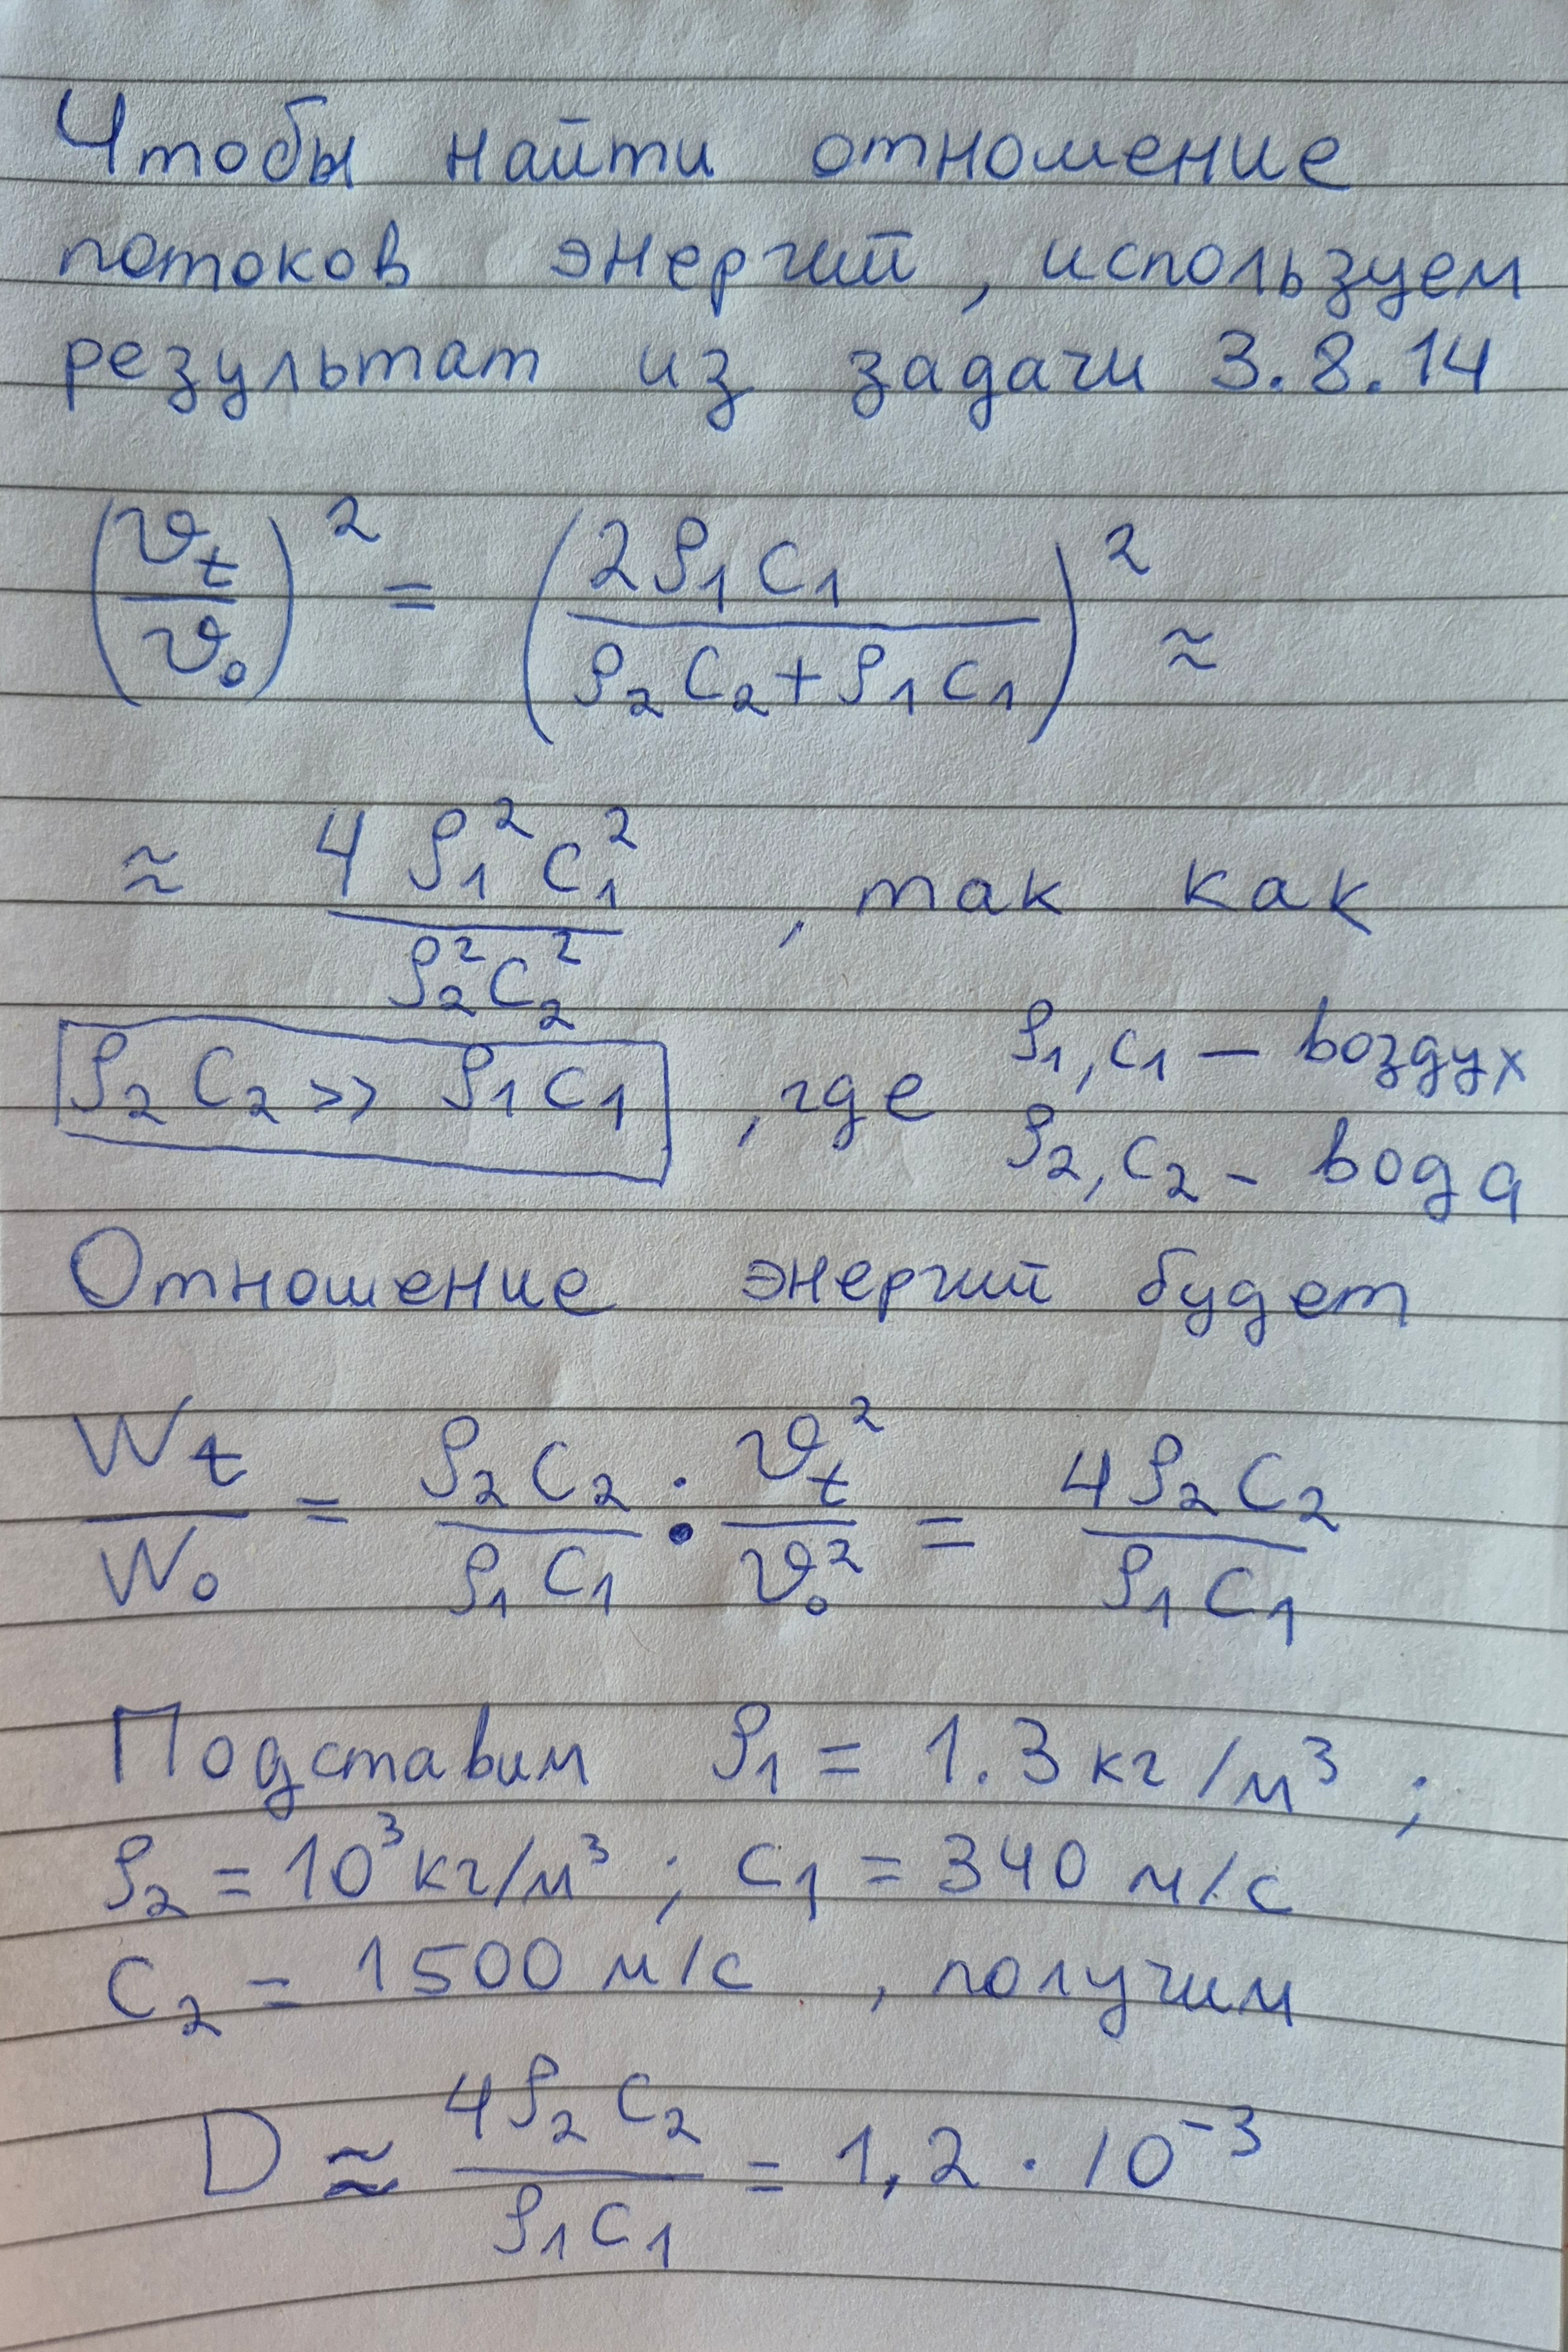 Чтобы найти отношение
потоков энергий, используем
результат из задачи 3.8.14
(υt/υ₀)² = (2ρ₁c₁/(ρ₂c₂+ρ₁c₁))² ≈
≈ 4ρ₁²c₁²/ρ₂²c₂² , так как
ρ₂c₂ >> ρ₁c₁ , где ρ₁,c₁ — воздух
ρ₂,c₂ - вода
Отношение энергий будет
Wt/W₀ = ρ₂c₂/ρ₁c₁ · υt²/υ₀² = 4ρ₂c₂/ρ₁c₁
Подставим ρ₁ = 1.3 кг/м³ ;
ρ₂ = 10³ кг/м³ ; c₁ = 340 м/с
c₂ = 1500 м/с , получим
D ≈ 4ρ₂c₂/ρ₁c₁ = 1,2 · 10⁻³